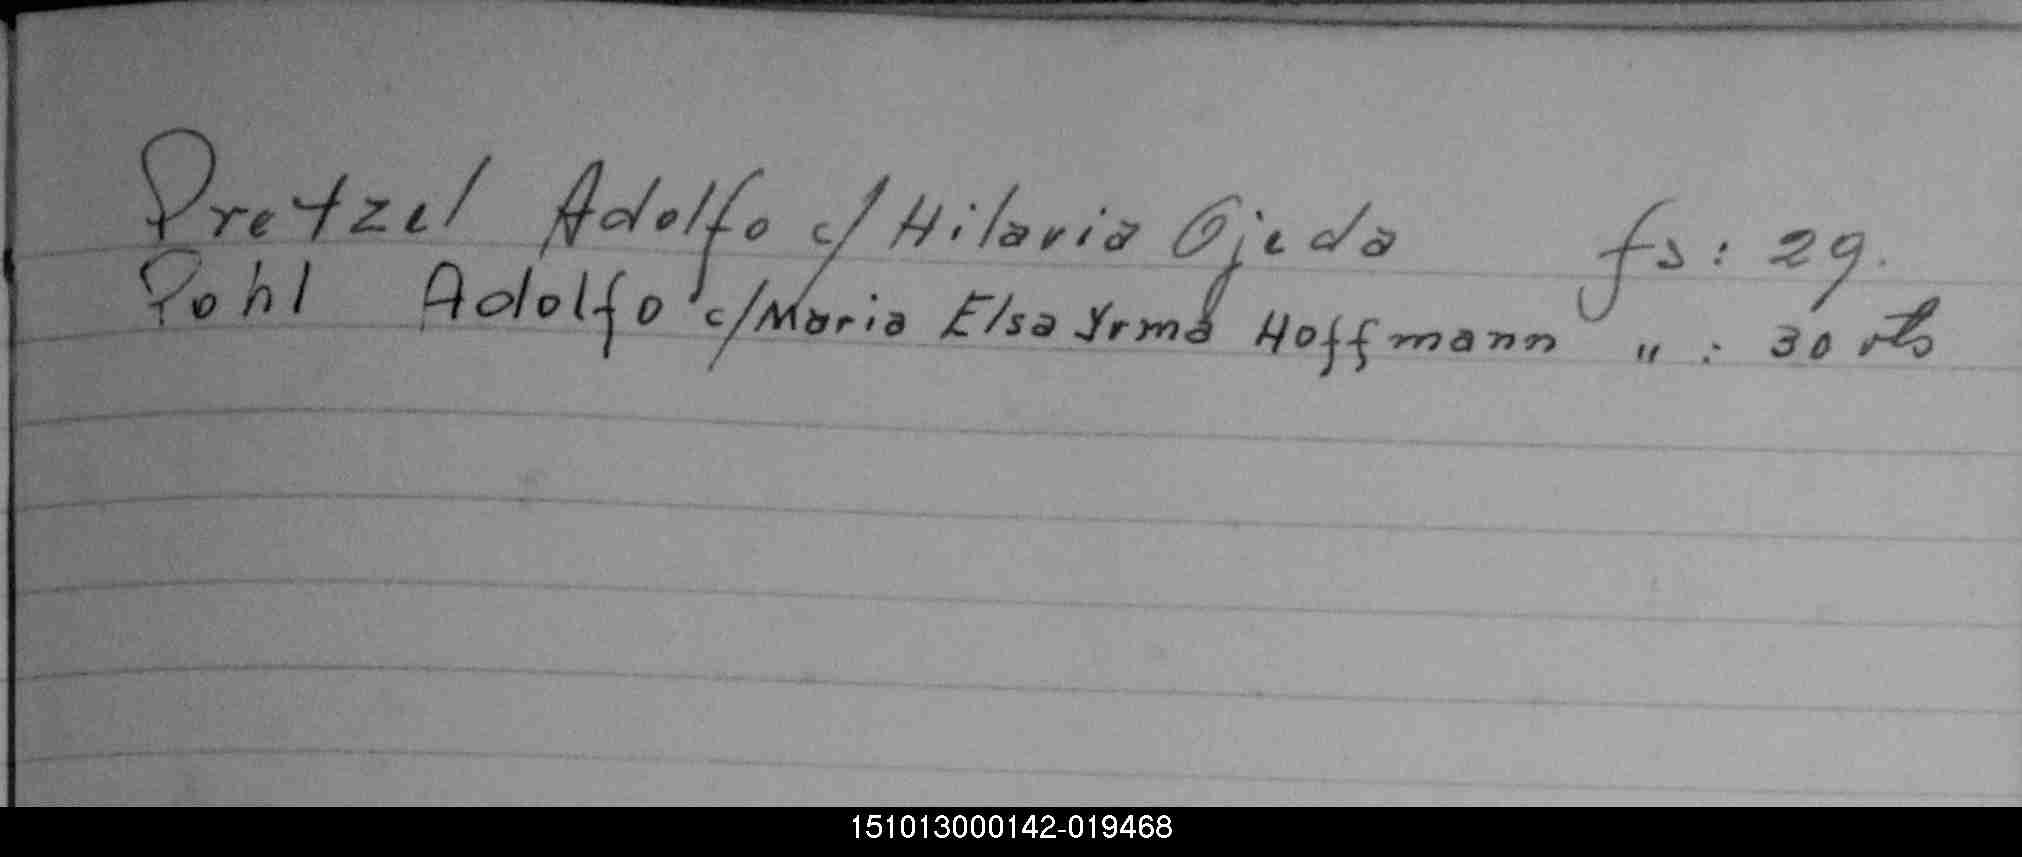 Pretzel Adolfo c/ Hilaria Ojeda fs: 29.
Pohl Adolfo c/ Maria Elsa Yrma Hoffmann " : 30 vts
151013000142-019468